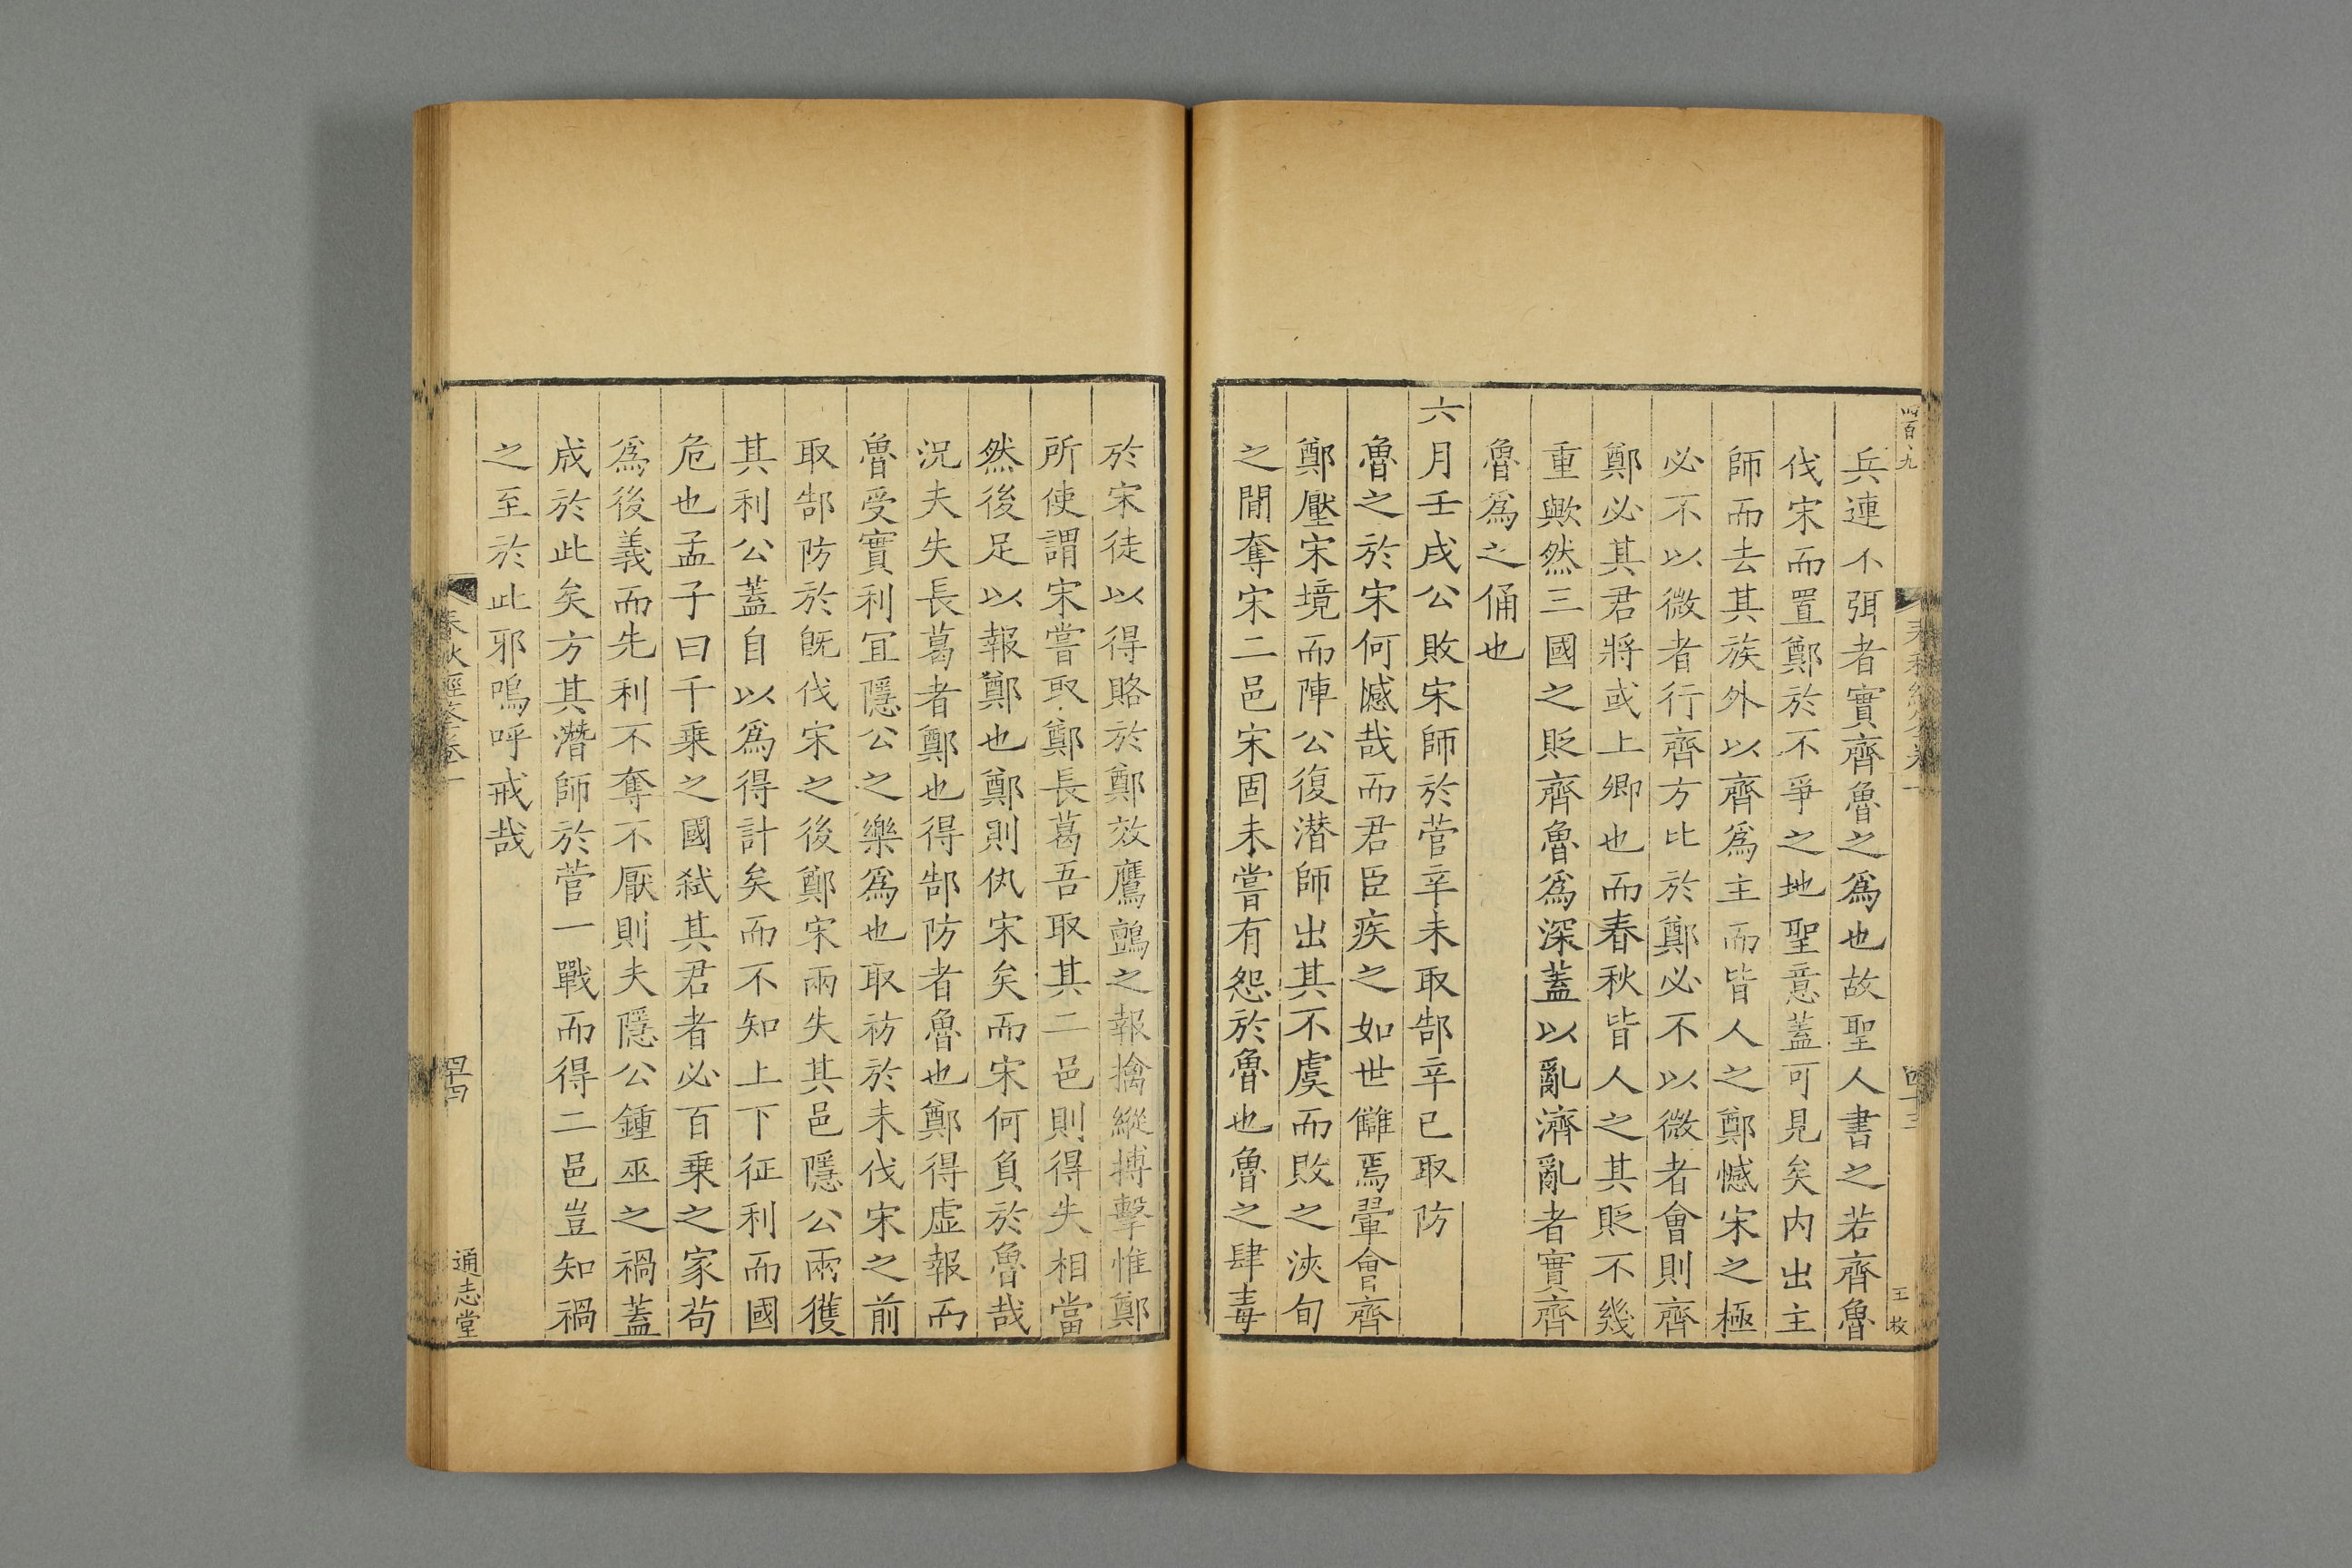 四百九
王枚
兵連不弭者實齊魯之爲也故聖人書之若齊魯
伐宋而置鄭於不爭之地聖意蓋可見矣内出主
師而去其族外以齊爲主而皆人之鄭憾宋之極
必不以微者行齊方比於鄭必不以微者會則齊
鄭必其君將或上卿也而春秋皆人之其貶不幾
重歟然三國之貶齊魯爲深蓋以亂濟亂者實齊
魯爲之俑也
六月壬戌公敗宋師於菅辛未取郜辛巳取防
魯之於宋何憾哉而君臣疾之如世讎焉翬會齊
鄭壓宋境而陣公復潛師出其不虞而敗之浹旬
之間奪宋二邑宋固未嘗有怨於魯也魯之肆毒
於宋徒以得賂於鄭效鷹鸇之報擒縱搏擊惟鄭
所使謂宋嘗取鄭長葛吾取其二邑則得失相當
然後足以報鄭也鄭則仇宋矣而宋何負於魯哉
況夫失長葛者鄭也得郜防者魯也鄭得虛報而
魯受實利冝隱公之樂爲也取祊於未伐宋之前
取郜防於旣伐宋之後鄭宋兩失其邑隱公兩獲
其利公蓋自以爲得計矣而不知上下征利而國
危也孟子曰千乗之國弑其君者必百乗之家茍
爲後義而先利不奪不厭則夫隱公鍾巫之禍蓋
成於此矣方其潛師於菅一戰而得二邑豈知禍
之至於此邪嗚呼戒哉
通志堂